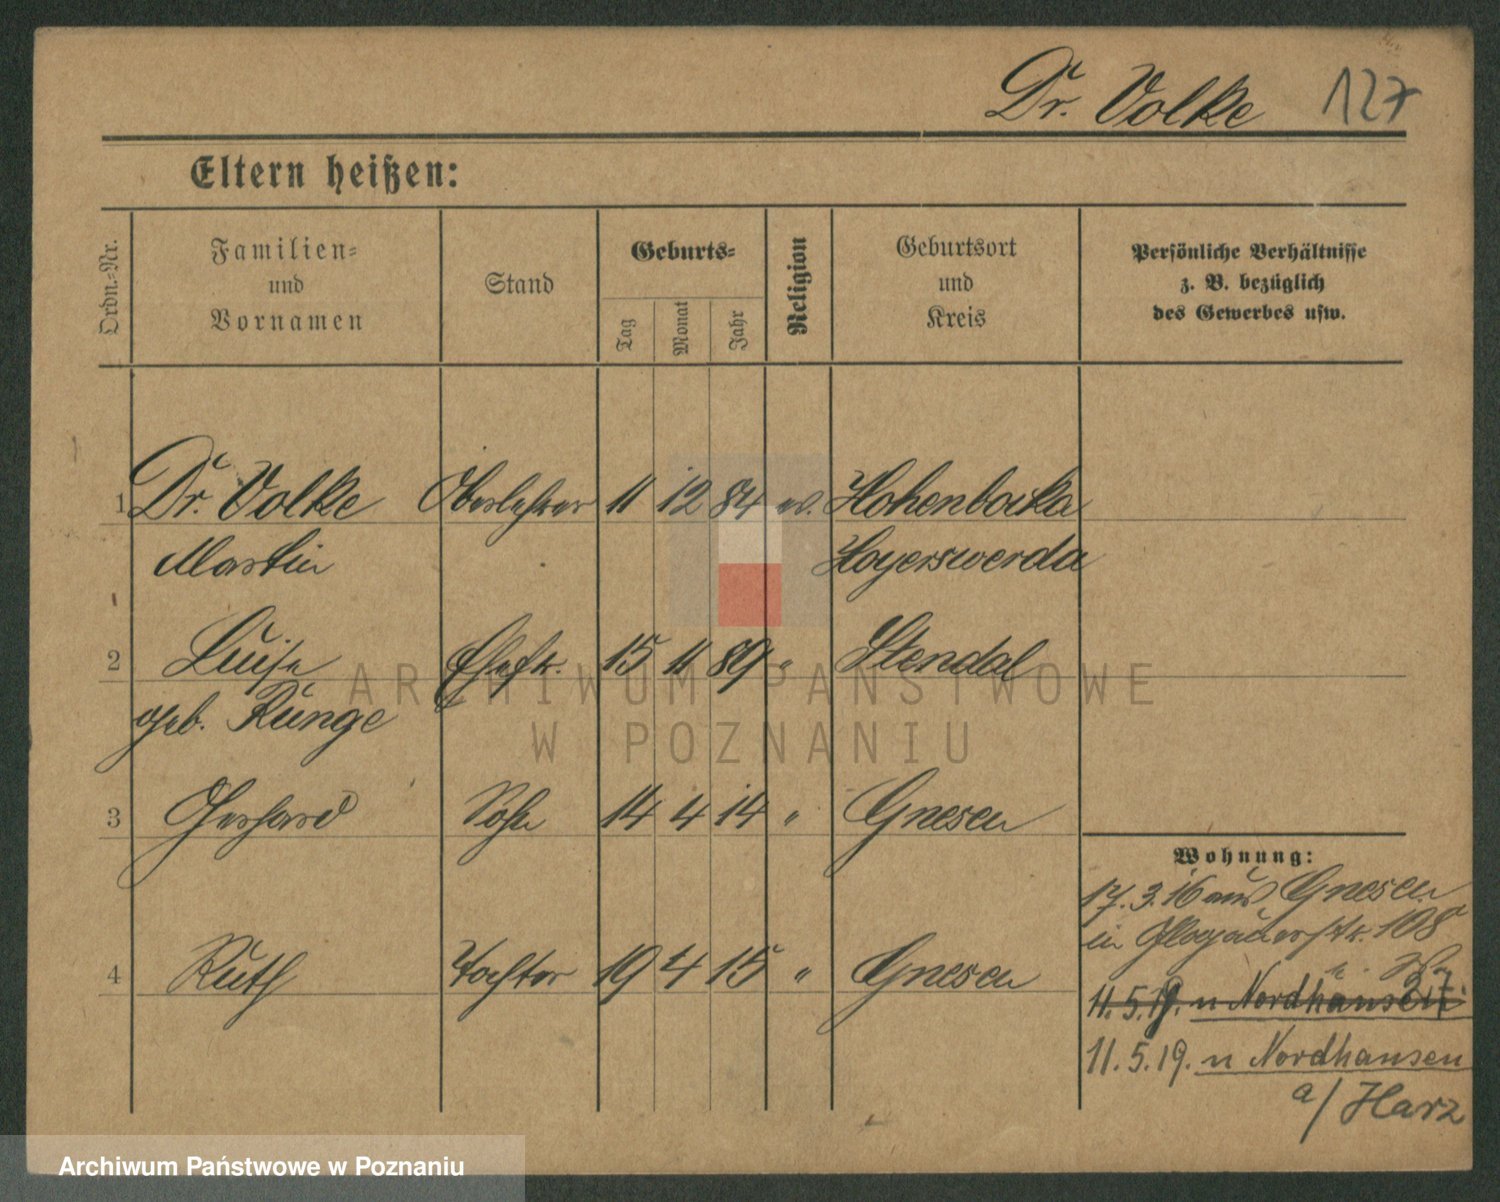 Dr. Volke 127
Eltern heißen:
Ordn.-Nr.
Familien-
und
Vornamen
Stand
Geburts-
Tag
Monat
Jahr
Religion
Geburtsort
und
Kreis
Persönliche Verhältnisse
z. B. bezüglich
des Gewerbes usw.
1 Dr. Volke Oberlehrer 11 12 84 ev. Hohenbocka
Martin Hoyerswerda
2 Luise Ehefr. 15 11 89 " Stendal
geb. Runge
3 Gerhard Sohn 14 4 14 " Gnesen
4 Ruth Tochter 19 4 15 " Gnesen
Wohnung:
17.3.16 aus Gnesen
in Glogauerstr. 108
11.5.19. n Nordhausen
11.5.19. n Nordhausen
a/Harz
ARCHIWUM PAŃSTWOWE
W POZNANIU
Archiwum Państwowe w Poznaniu